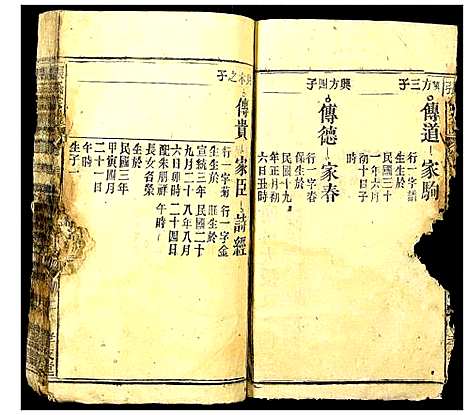 興方三子
傳道 家駒
行一字語
生生於
民國三十
一年六月
初十日子
時
興方四子
傳德 家春
行一字春
保生於
民國十九
年正月初
六日丑時
之子
傳貴 家臣 詩經
行一字菊
生生於
宣統三年
九月二十
六日卯時
配朱朋祥
長女名榮
生於
民國三年
甲寅四月
二十一日
午時
生子一
行一字金
旺生於
民國二十
八年八月
二十四日
午時